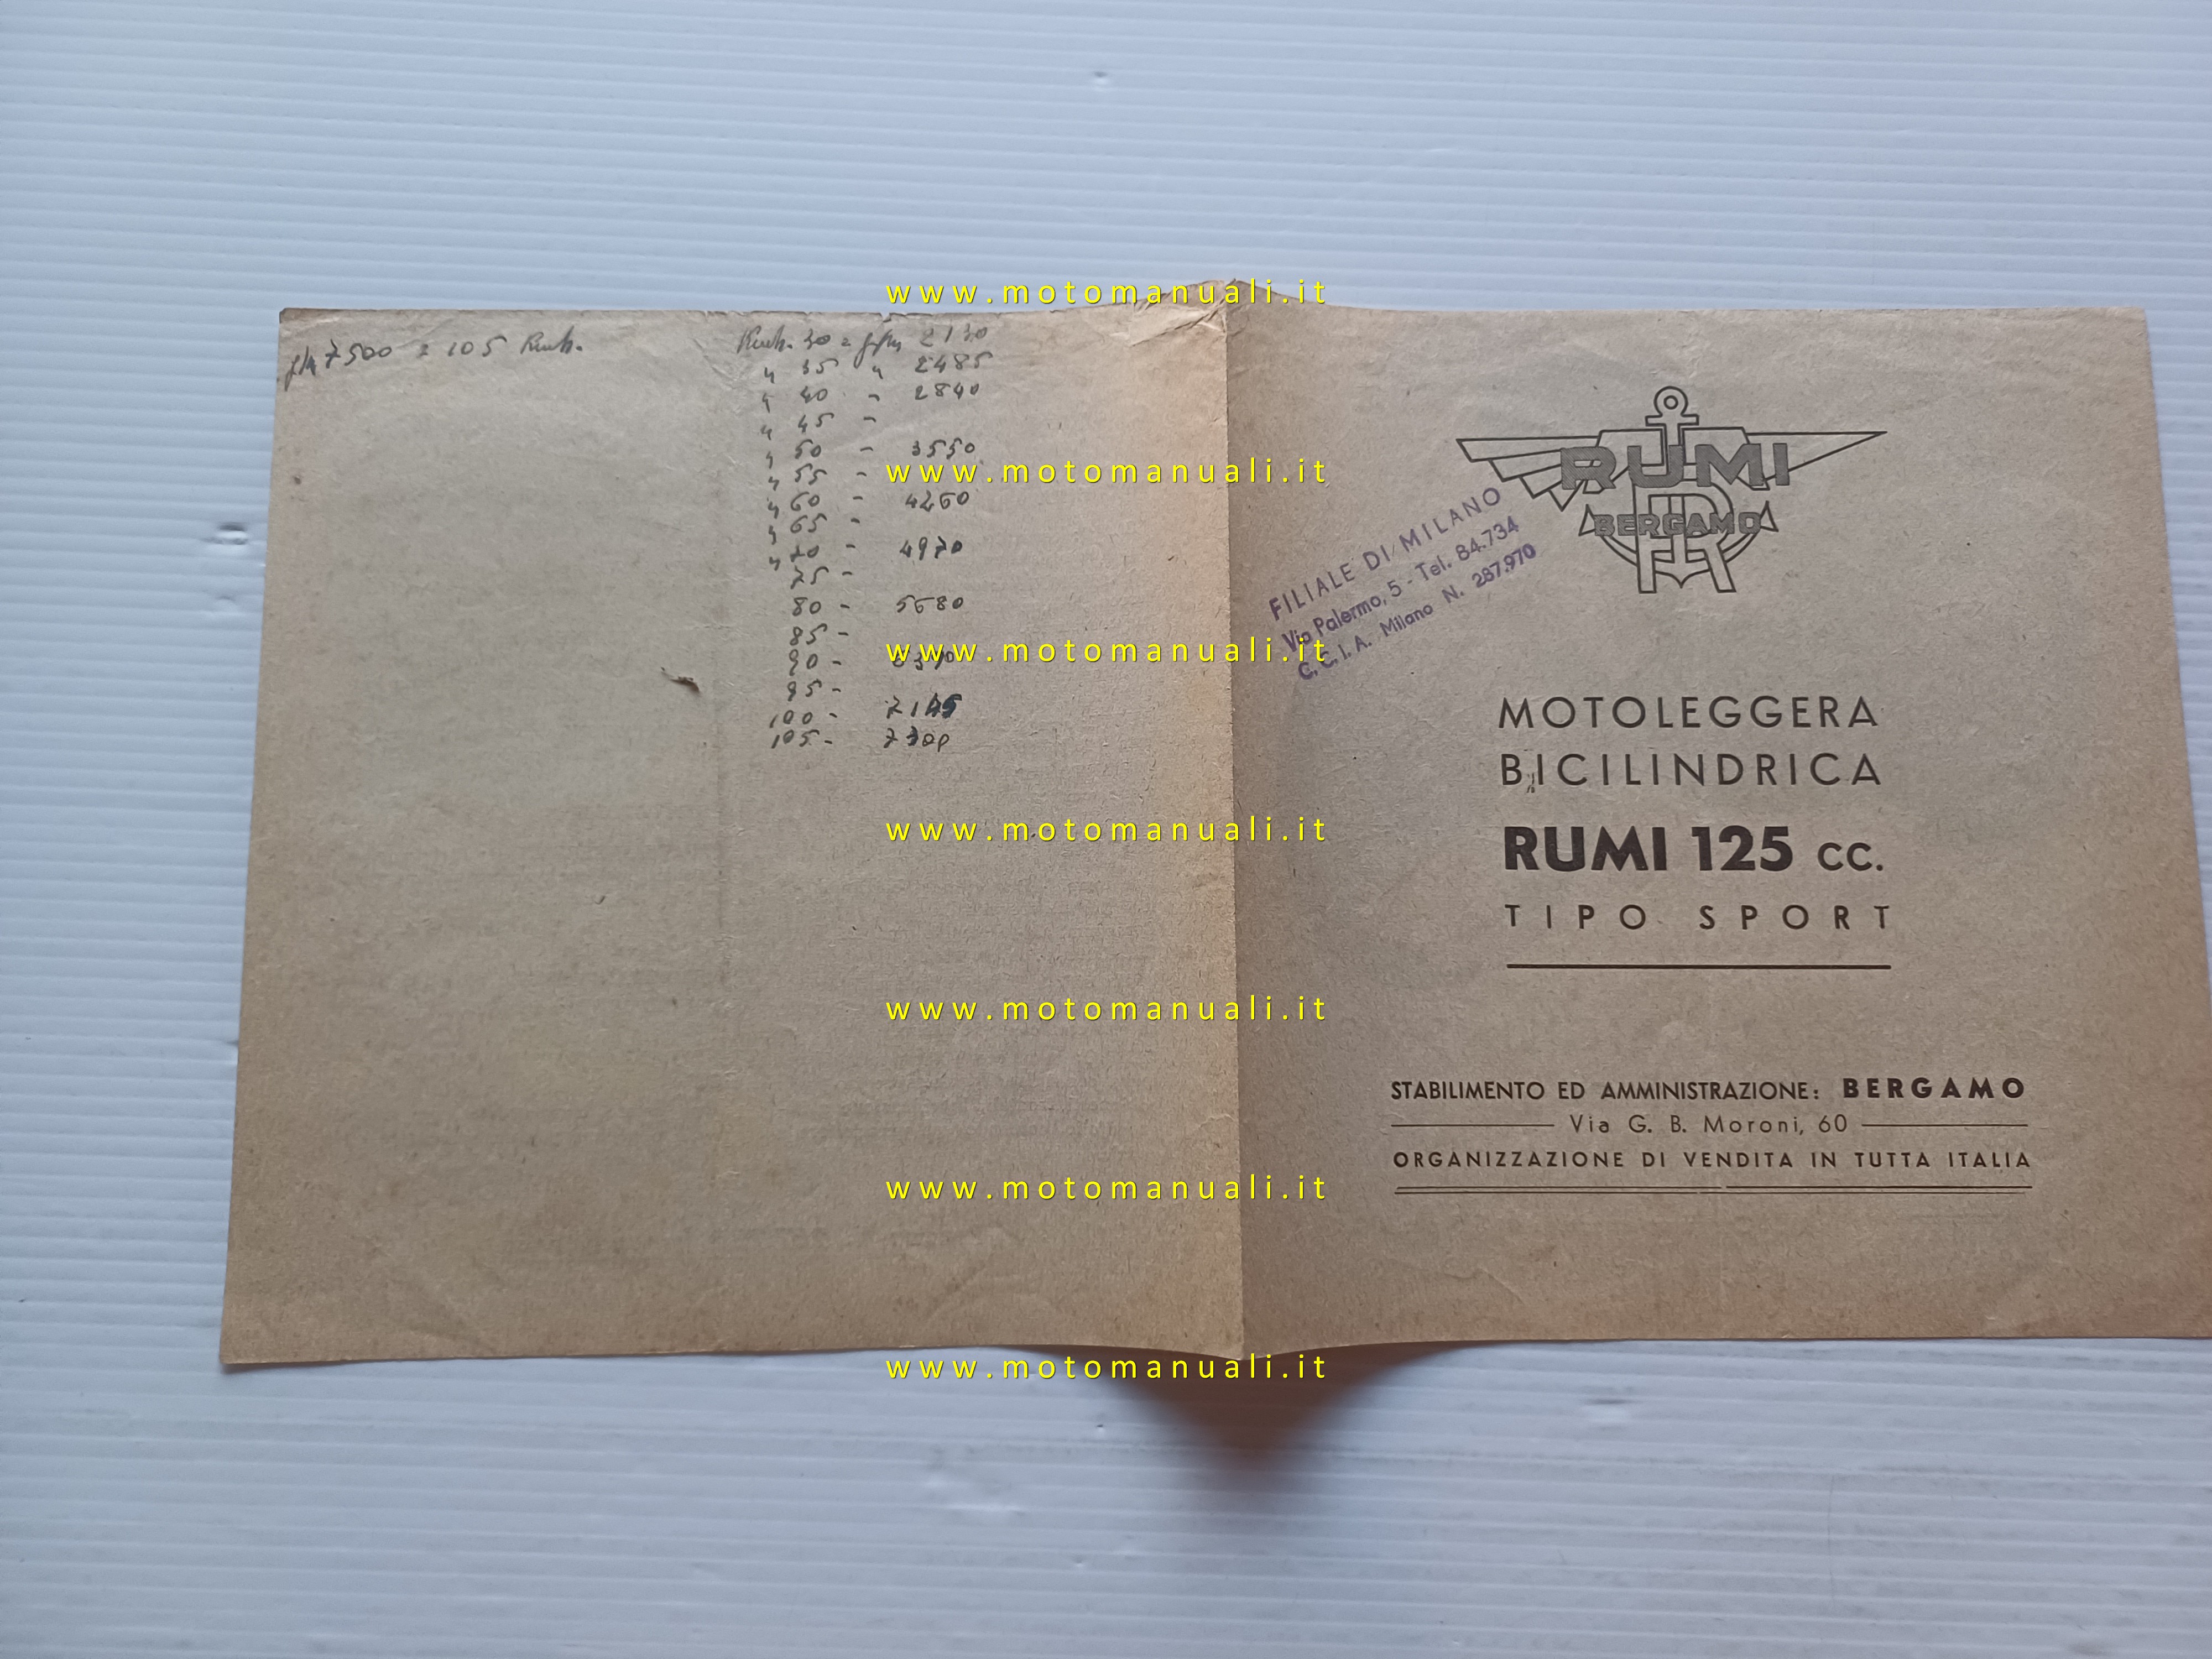 7500 = 105 Kmh.
Kmh. 30 = 2130
" 35 " 2485
" 40 - 2840
" 45 -
" 50 - 3550
" 55 -
" 60 - 4260
" 65 -
" 70 - 4970
75 -
80 - 5680
85 -
90 -
95 -
100 -
105 -
RUMI
BERGAMO
FILIALE DI MILANO
Via Palermo, 5 - Tel. 84.734
C.C.I.A. Milano N. 287.970
MOTOLEGGERA
BICILINDRICA
RUMI 125 cc.
TIPO SPORT
STABILIMENTO ED AMMINISTRAZIONE: BERGAMO
Via G. B. Moroni, 60
ORGANIZZAZIONE DI VENDITA IN TUTTA ITALIA
www.motomanuali.it
www.motomanuali.it
www.motomanuali.it
www.motomanuali.it
www.motomanuali.it
www.motomanuali.it
www.motomanuali.it